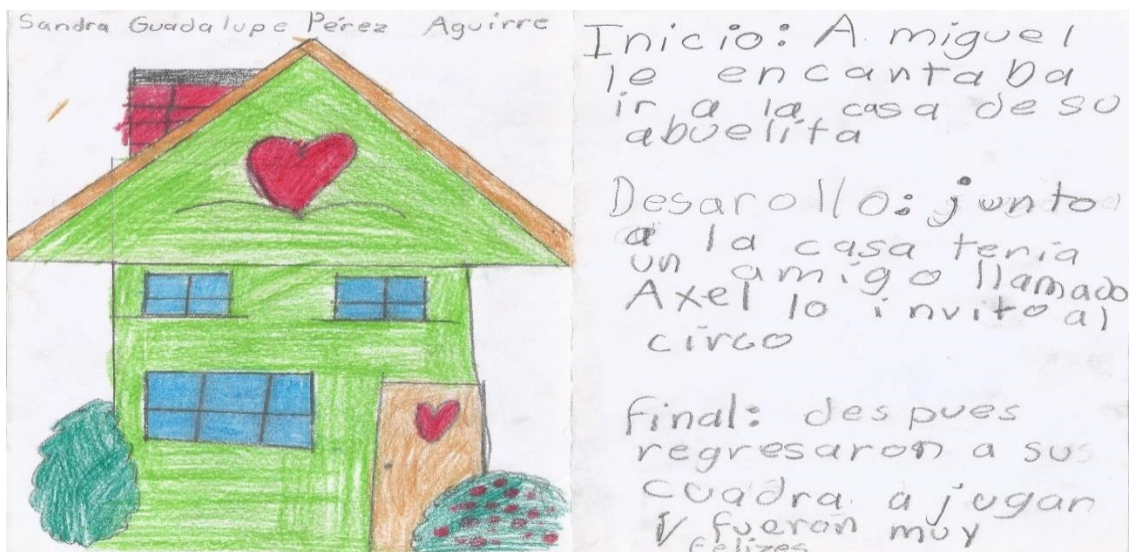 Sandra Guadalupe Pérez Aguirre
Inicio: A miguel
le encantaba
ir a la casa de su
abuelita
Desarollo: junto
a la casa tenia
un amigo llamado
Axel lo invito al
circo
final: des pues
regresaron a su
cuadra a jugar
y fueron muy
felizes